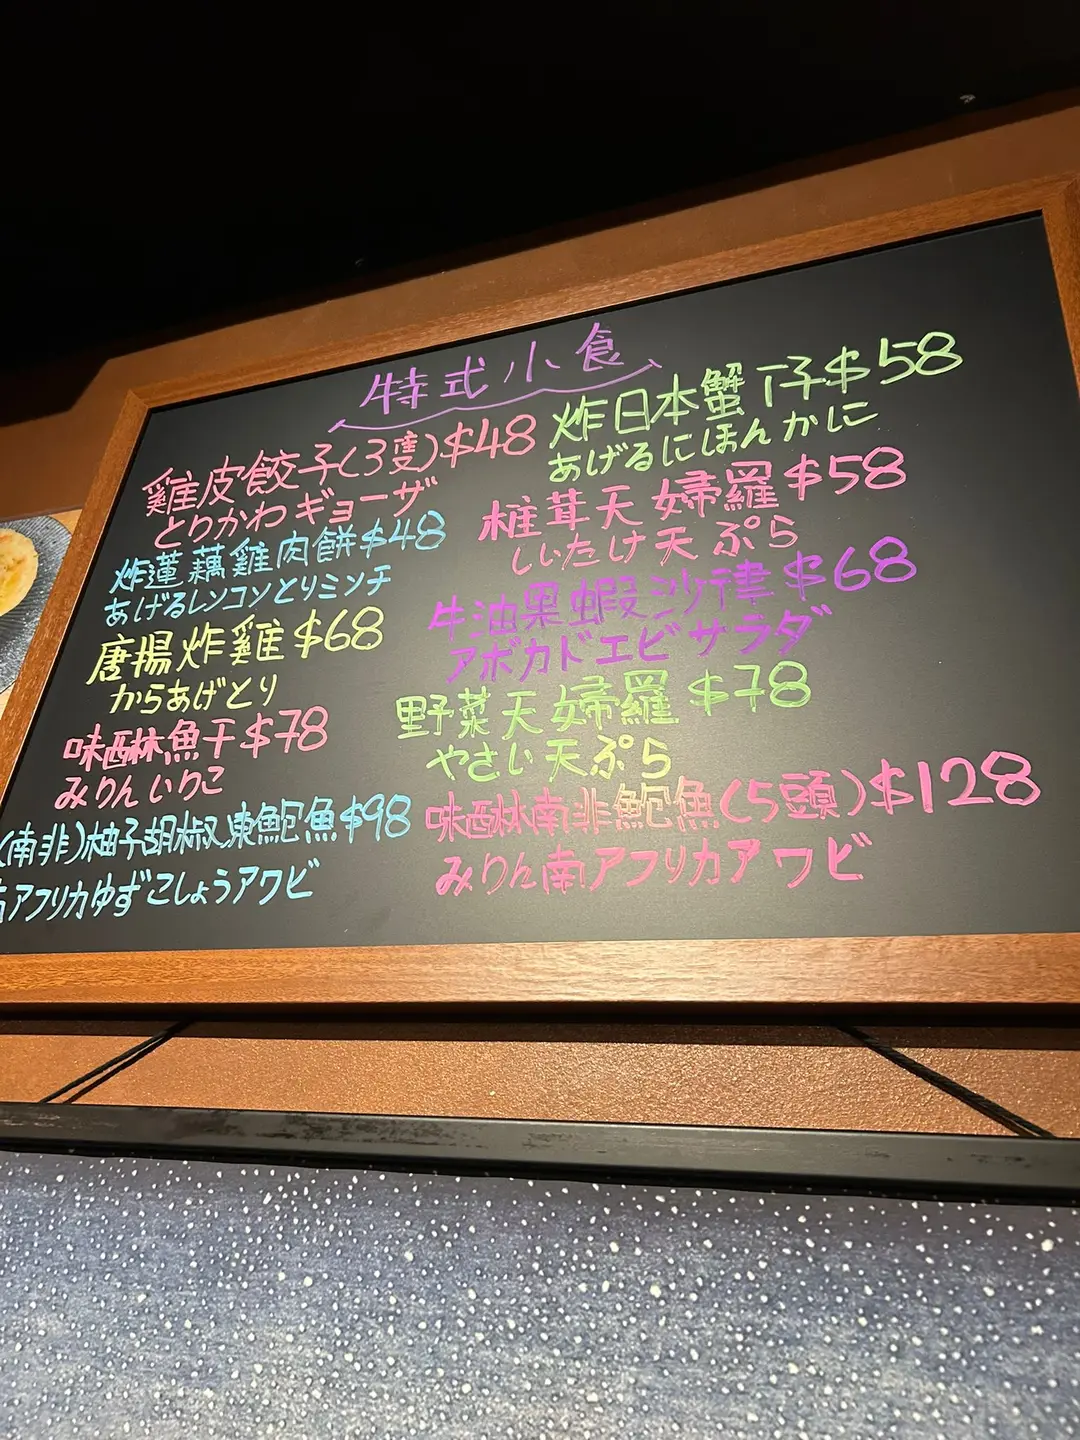 特式小食
雞皮餃子(3隻)$48
とりかわギョーザ
炸蓮藕雞肉餅$48
あげるレンコンとりミンチ
唐揚炸雞$68
からあげとり
味醂魚干$78
みりんいりこ
(南非)柚子胡椒凍鮑魚$98
アフリカゆずこしょうアワビ
炸日本蟹丁子$58
あげるにほんかに
椎茸天婦羅$58
しいたけ天ぷら
牛油果蝦沙律$68
アボカドエビサラダ
野菜天婦羅$78
やさい天ぷら
味醂南非鮑魚(5頭)$128
みりん南アフリカアワビ